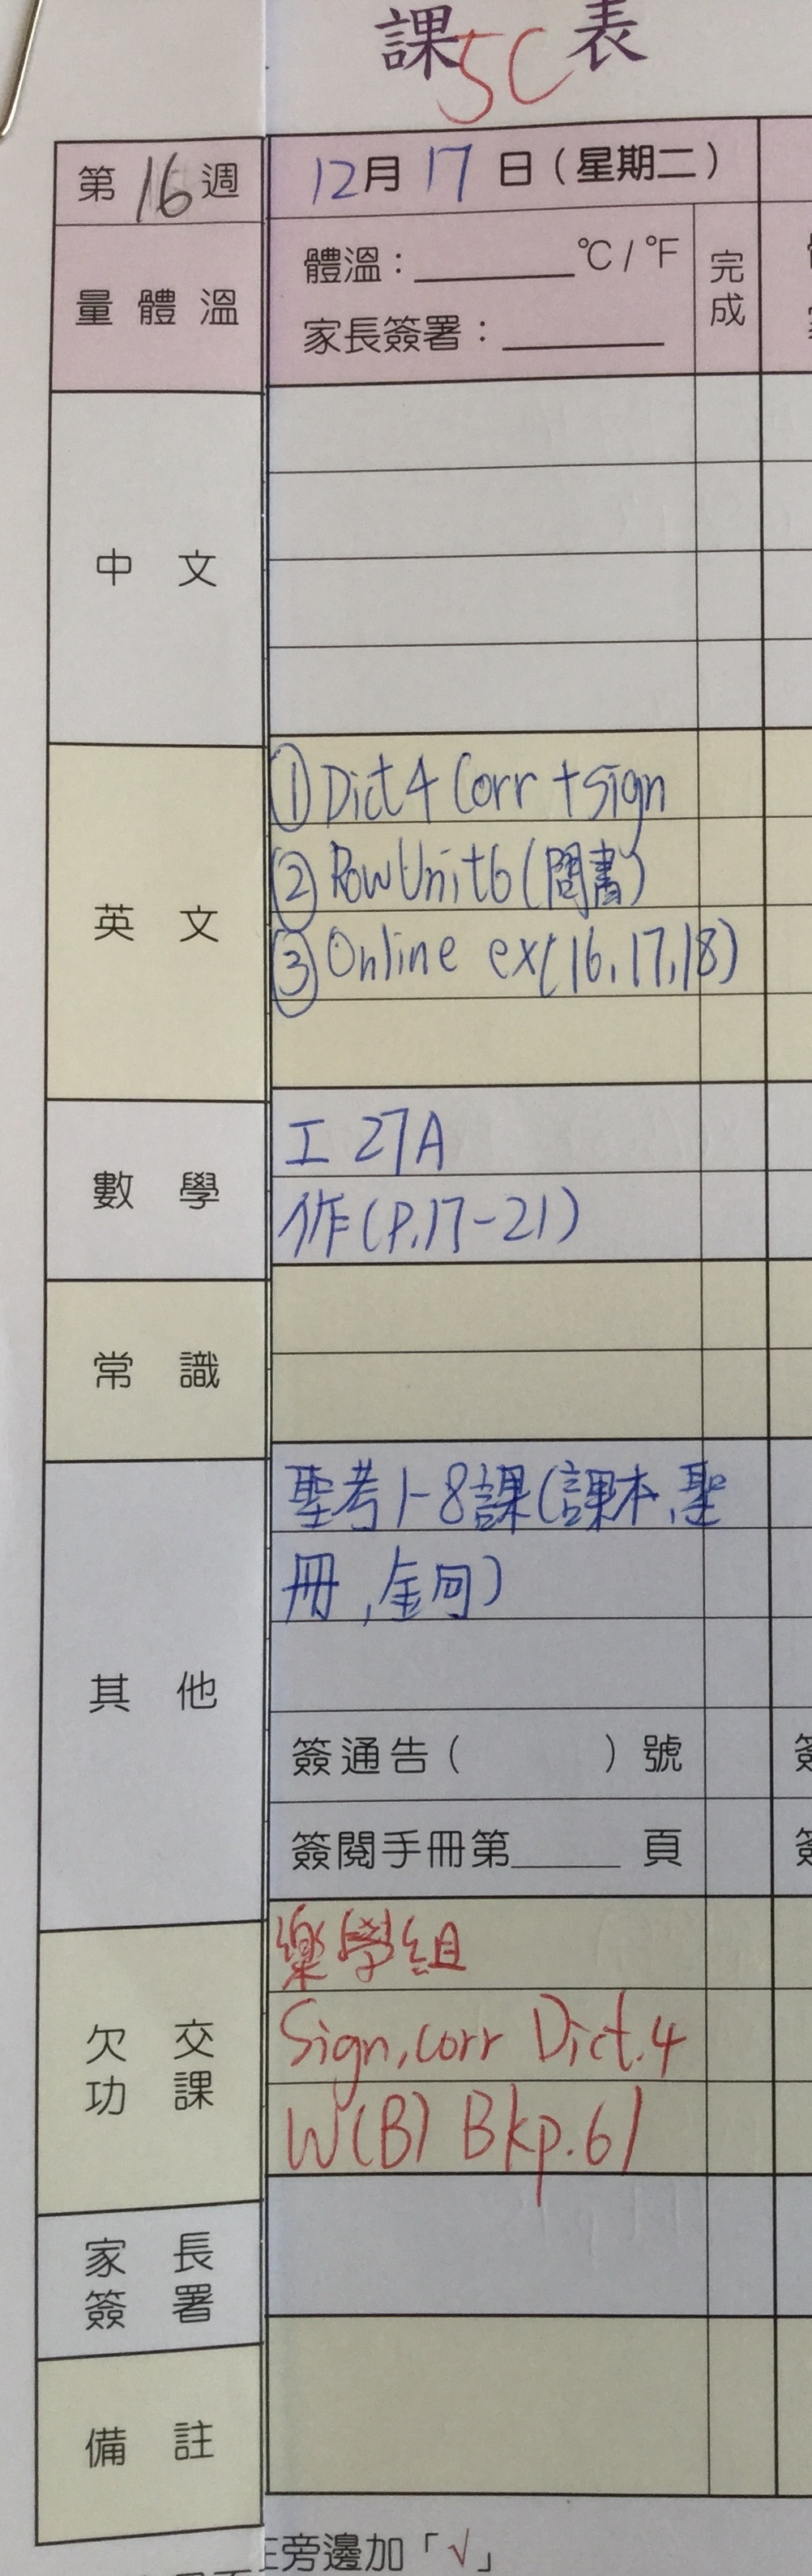 課 表
5C
第16週
12月17日（星期二）
量體溫
體溫：______°C / °F
完成
家長簽署：______
中文
英文
① Dict 4 Corr + sign
② Row Unit 6 (閱書)
③ Online ex (16, 17, 18)
數學
工 27A
作 (P.17-21)
常識
其他
聖考 1-8課 (課本, 聖
冊, 金句)
簽通告（ ）號
簽閱手冊第____頁
欠交功課
樂學組
Sign, corr Dict. 4
W(B) Bk p.61
家長簽署
備註
旁邊加「√」